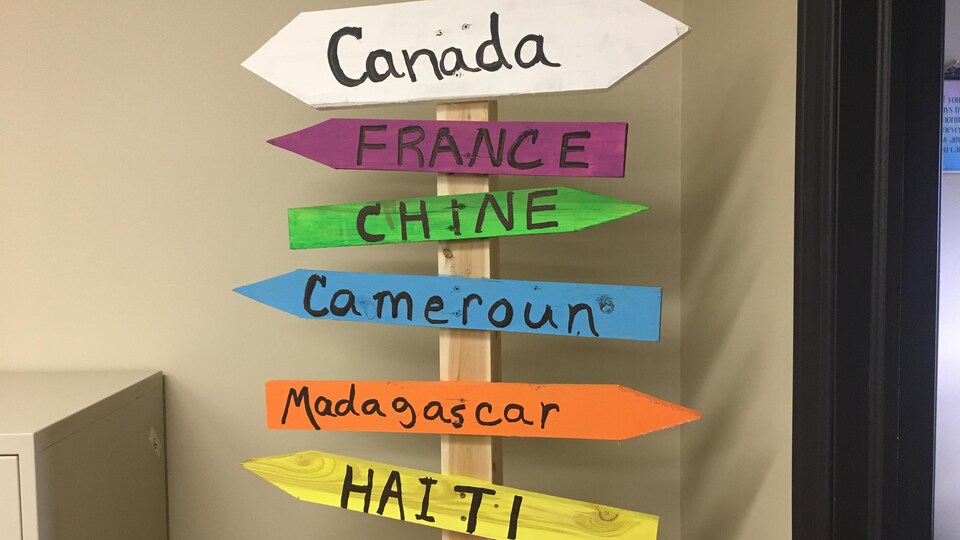 Canada
FRANCE
CHINE
Cameroun
Madagascar
HAITI